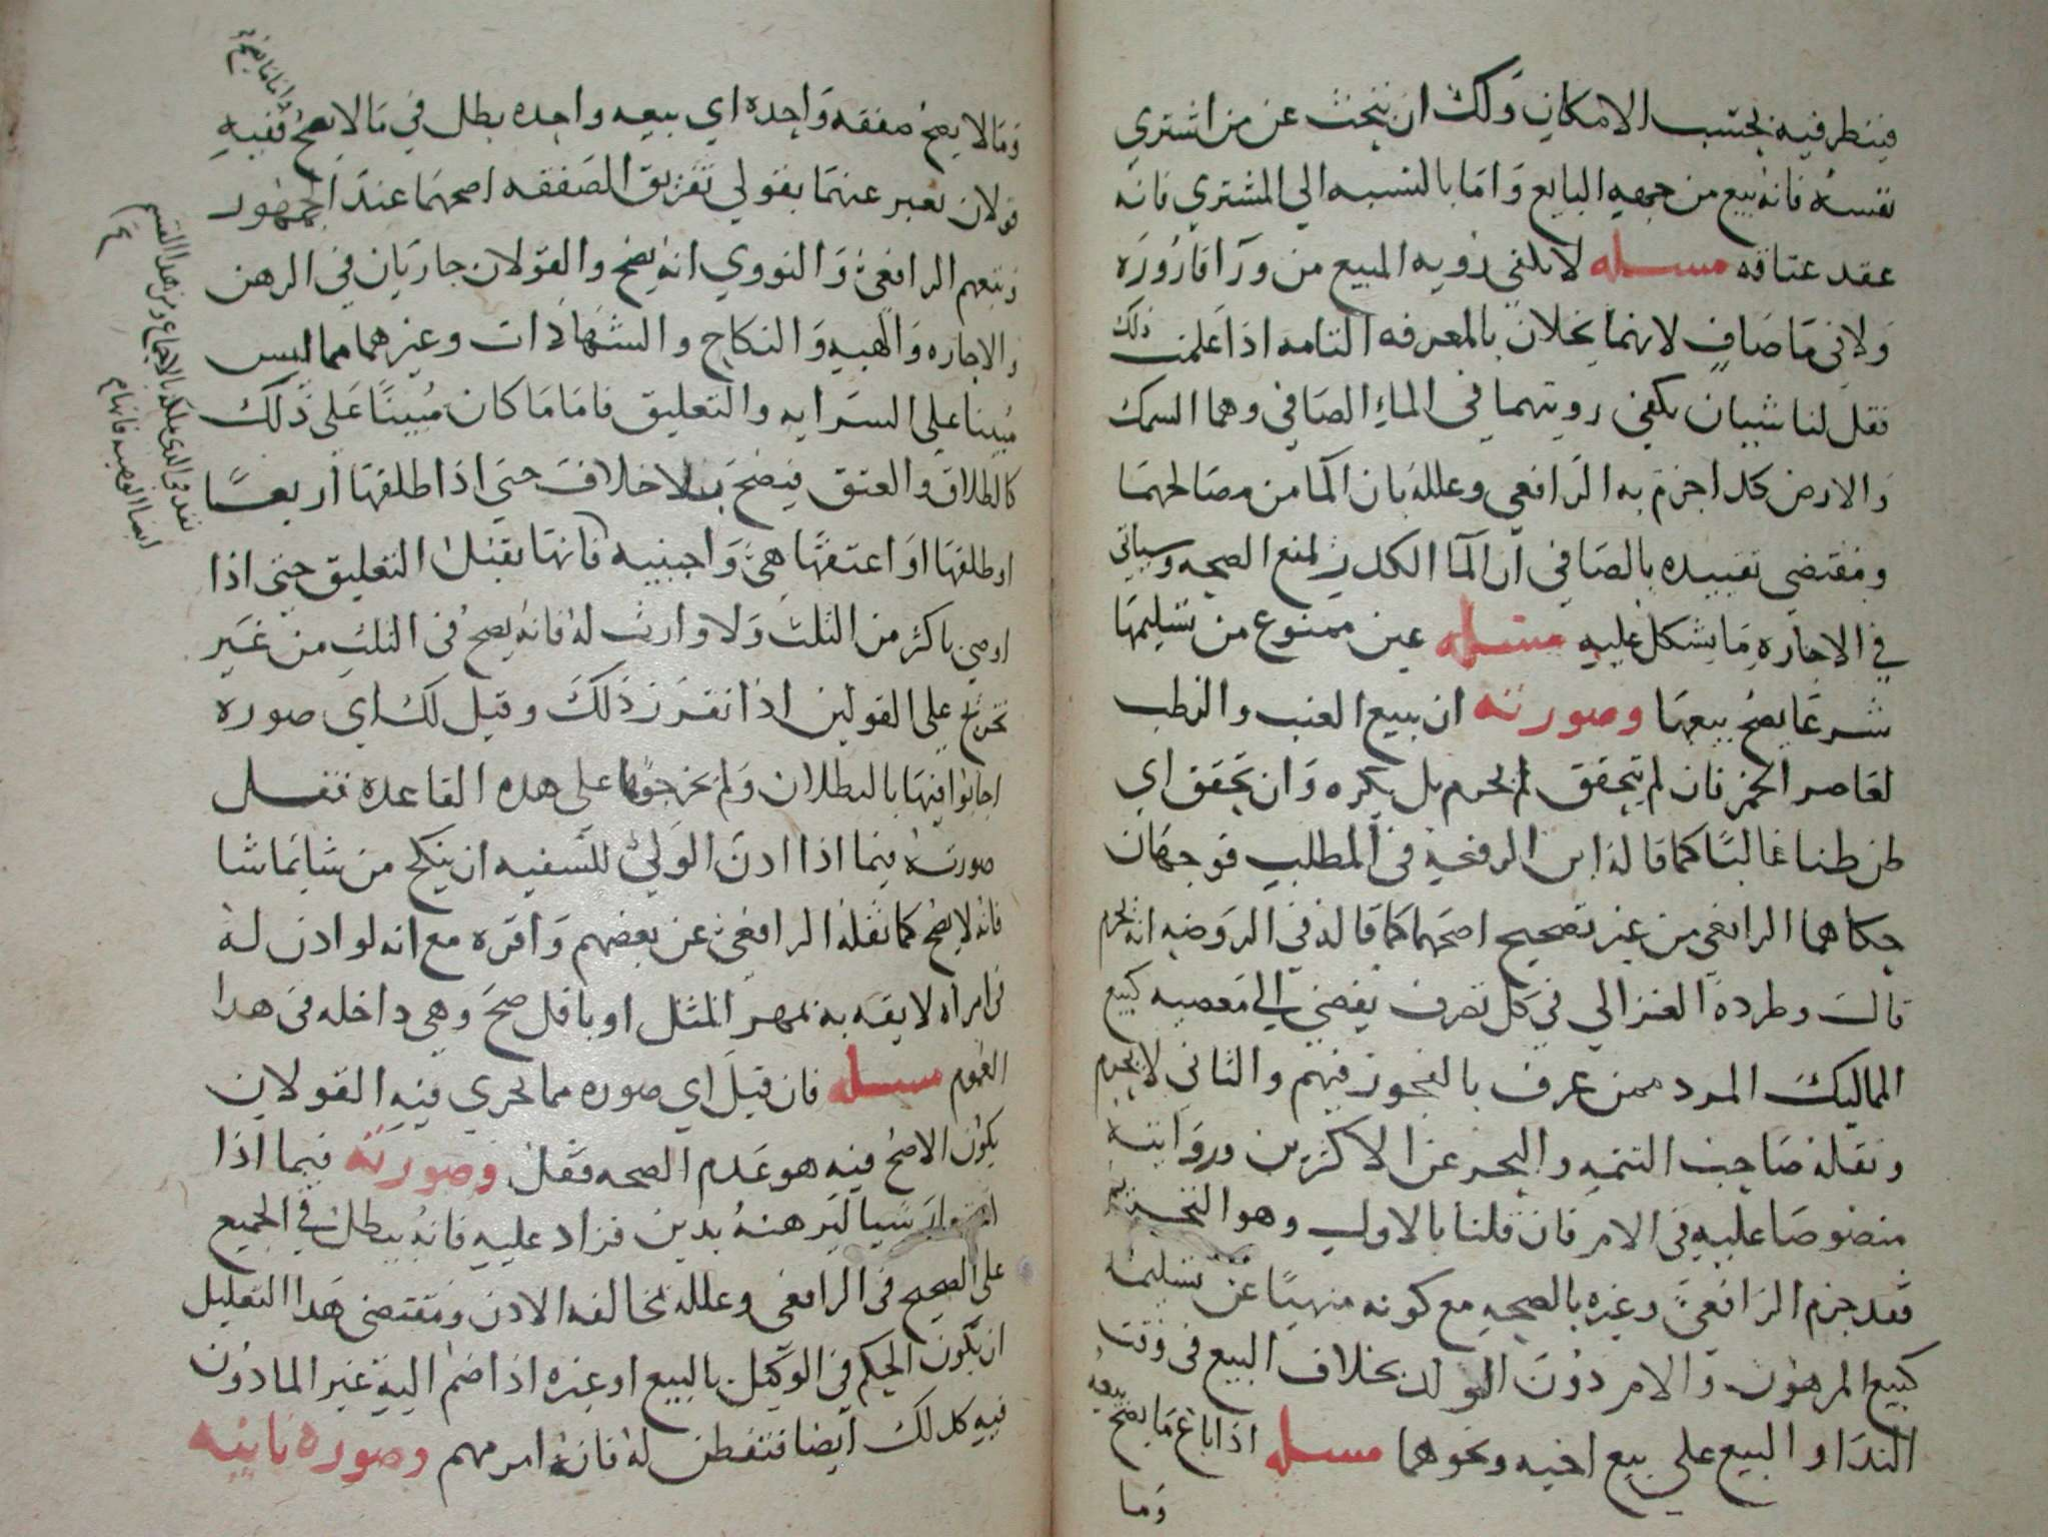 فينظر فيه بحسب الامكان ولك ان تبحث عن من اشتري
نفسه فانه بيع من جهه البايع واما بالنسبه الي المشتري فانه
عقد عتاقه مسله لا يكفي رويه المبيع من ورا قاروره
ولا في ما صاف لانهما يخلان بالمعرفه التامه اذا علمت ذلك
فقل لنا شييان يكفي رويتهما في الماء الصافي وهما السمك
والارض كدا جزم به الرافعي وعلله بان الما من مصالحهما
ومقتضي تقييده بالصافي ان الما الكدر يمنع الصحه وسياتي
في الاجاره ما يشكل عليه مسله عين ممنوع من تسليمها
شرعا يصح بيعها وصورته ان يبيع العنب والرطب
لعاصر الخمر فان لم يتحقق لم يحرم بل يكره وان تحقق اي
ظن ظنا غالبا كما قاله ابن الرفعه في المطلب فوجهان
حكاهما الرافعي من غير تصحيح اصحهما كما قاله في الروضه انه يحرم
قال وطرده الغزالي في كل تصرف يفضي الي معصيه كبيع
المماليك المرد ممن عرف بالفجور فيهم والثاني لا يحرم
ونقله صاحب التتمه والبحر عن الاكثرين ورواينه
منصوصا عليه في الام فان قلنا بالاول وهو التحريم
فقد جزم الرافعي وغيره بالصحه مع كونه منهيا عن تسليمه
كبيع المرهون والام دون الولد بخلاف البيع في وقت
الندا والبيع علي بيع اخيه ونحوهما مسله اذا باع ما يصح بيعه
وما
وما لا يصح صفقه واحده اي بيعه واحده بطل في ما لا يصح ففيه
قولان يعبر عنهما بقولي تفريق الصفقه اصحهما عند الجمهور
وتبعهم الرافعي والنووي انه يصح والقولان جاريان في الرهن
والاجاره والهبه والنكاح والشهادات وغيرهما مما ليس
مبينا علي السرايه والتعليق فاما ما كان مبينا علي ذلك
كالطلاق والعتق فيصح بلا خلاف حتي اذا طلقها اربعا
او طلقها او اعتقها هي واجنبيه فانها يقبل التعليق حتي اذا
اوصي باكثر من الثلث ولا وارث له فانه يصح في الثلث من غير
تخريج علي القولين اذا تقرر ذلك وقيل لك اي صوره
اجابوا فيها بالبطلان ولم يخرجوها علي هده القاعده فقل
صورته فيما اذا ادن الولي للسفيه ان ينكح من شا بما شا
فانه لا يصح كما نقله الرافعي عن بعضهم واقره مع انه لو ادن له
في امراه لايقه به بمهر المثل او باقل صح وهي داخله في هدا
العموم مسله فان قيل اي صوره مما يجري فيه القولان
يكون الاصح فيه هو عدم الصحه فقل وصورته فيما اذا
استعار شيا ليرهنه بدين فزاد عليه فانه يبطل في الجميع
علي الصحيح في الرافعي وعلله بمخالفه الادن ومقتضي هدا التعليل
ان يكون الحكم في الوكيل بالبيع او غيره اذا ضم اليه غير المادون
فيه كدلك ايضا فتفطن له فانه امر مهم وصوره ثانيه
واما ما يصح
نفد في الذي يملكه بالاجماع ومن هدا القسم
ايضا الوصيه فانها